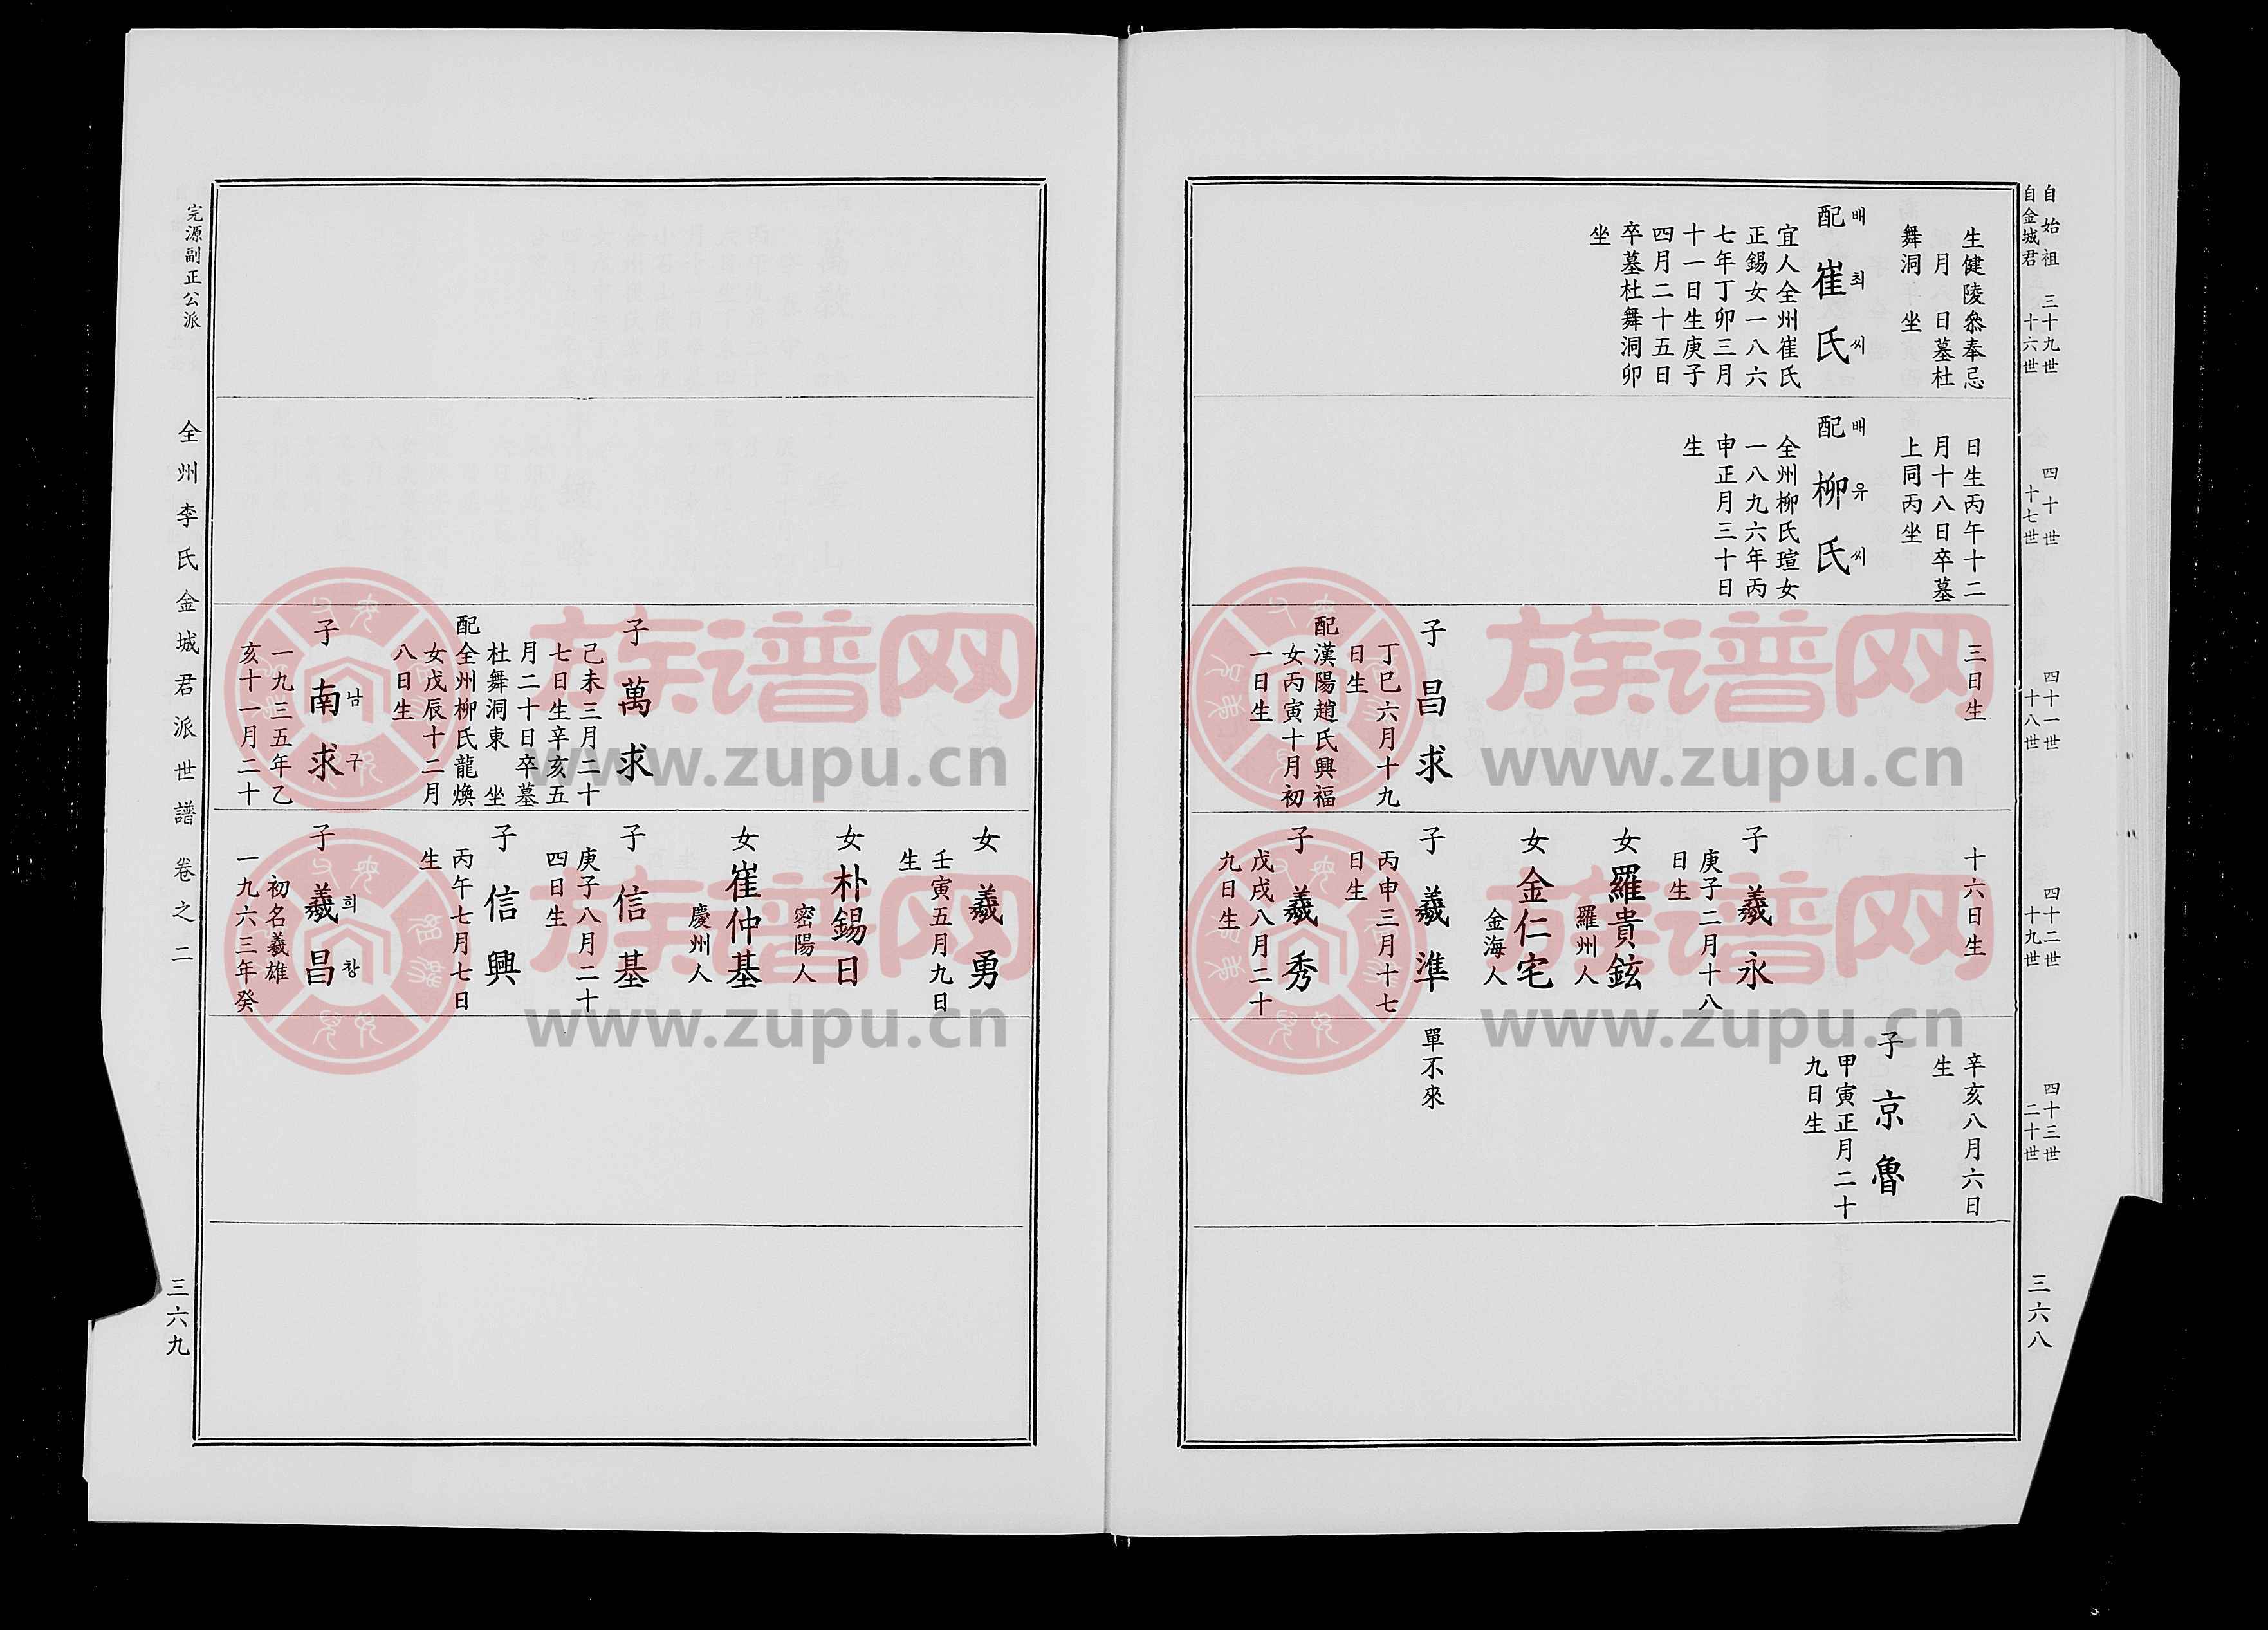 自始祖 三十九世 四十世 四十一世 四十二世 四十三世
自金城君 十六世 十七世 十八世 十九世 二十世
三六八
生健陵叅奉忌
月 日墓杜
舞洞 坐
配 배
崔氏 최씨
宜人全州崔氏
正錫女一八六
七年丁卯三月
十一日生庚子
四月二十五日
卒墓杜舞洞卯
坐
日生丙午十二
月十八日卒墓
上同丙坐
配 배
柳氏 유씨
全州柳氏瑄女
一八九六年丙
申正月三十日
生
三日生
子昌求
丁巳六月十九
日生
配漢陽趙氏興福
女丙寅十月初
一日生
十六日生
子羲永
庚子二月十八
日生
女羅貴鉉
羅州人
女金仁宅
金海人
子羲準
丙申三月十七
日生
子羲秀
戊戌八月二十
九日生
辛亥八月六日
生
子京魯
甲寅正月二十
九日生
單不來
子萬求
己未三月二十
七日生辛亥五
月二十日卒墓
杜舞洞東 坐
配全州柳氏龍煥
女戊辰十二月
八日生
子南求 남구
一九三五年乙
亥十一月二十
女羲勇
壬寅五月九日
生
女朴錫日
密陽人
女崔仲基
慶州人
子信基
庚子八月二十
四日生
子信興
丙午七月七日
生
子羲昌 희창
初名羲雄
一九六三年癸
完源副正公派
全州李氏金城君派世譜 卷之二
三六九
族谱网
www.zupu.cn
族谱网
www.zupu.cn
族谱网
www.zupu.cn
族谱网
www.zupu.cn